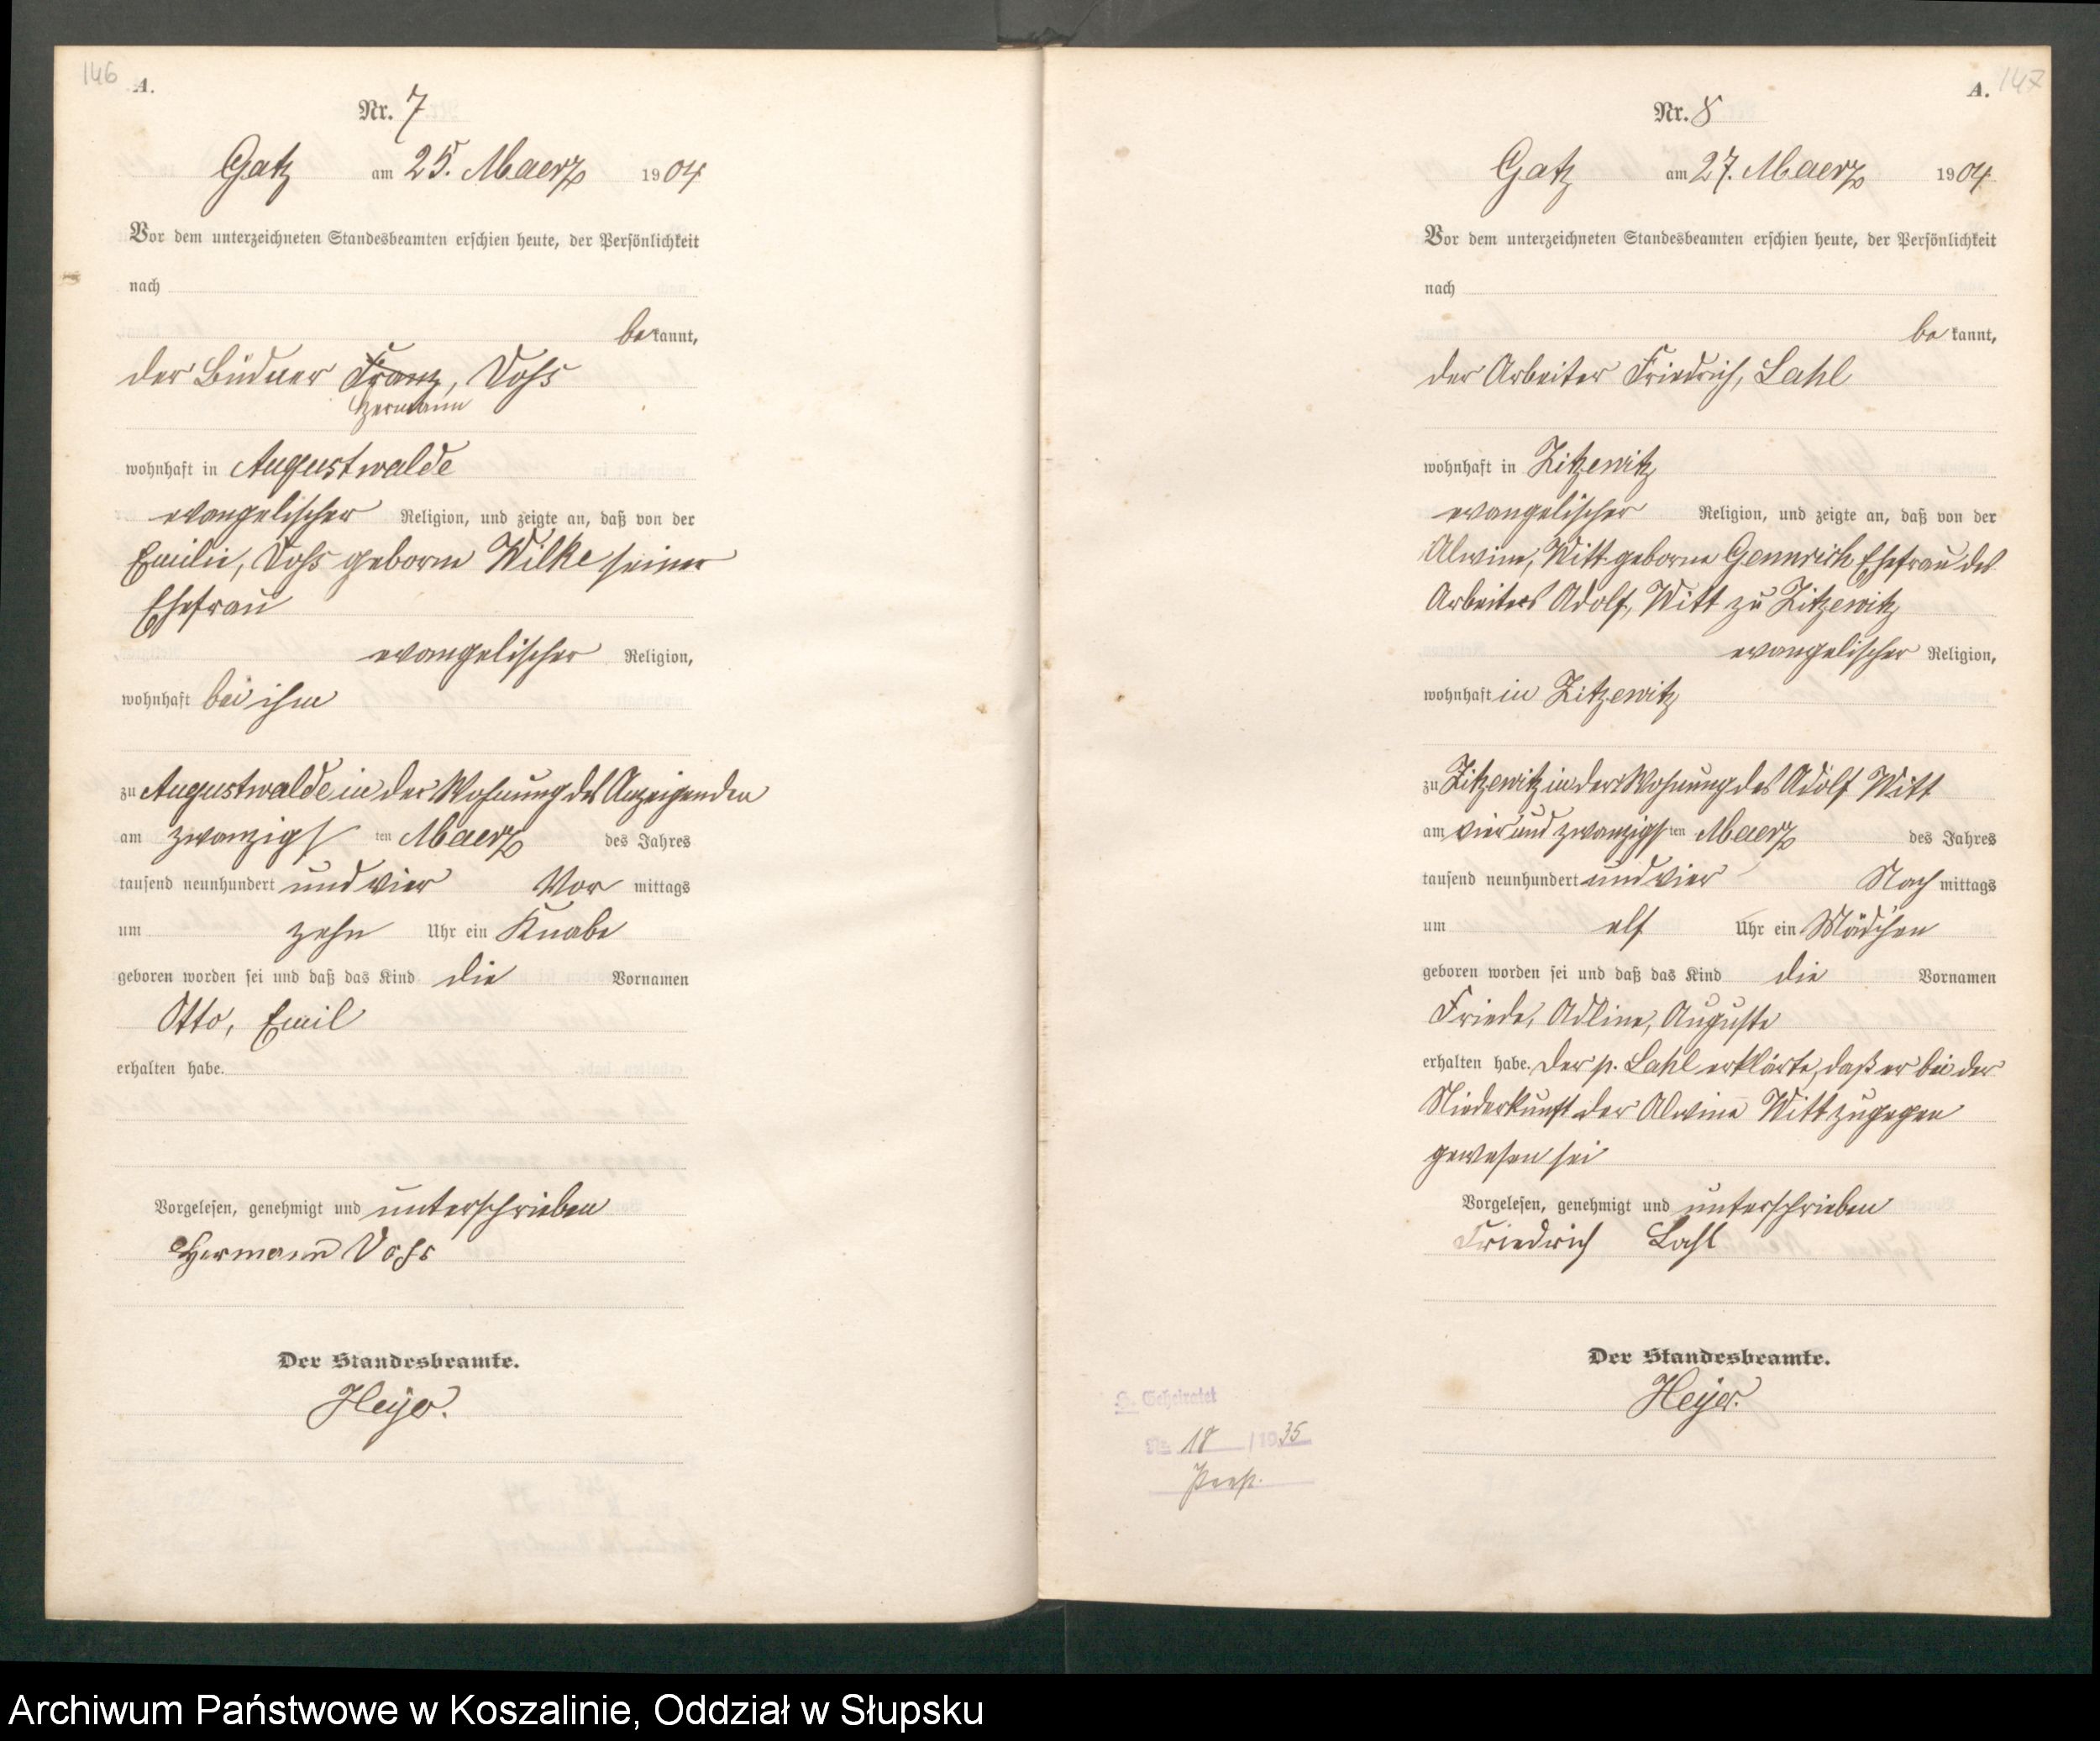 146
A.
Nr. 7
Gatz am 25. Maerz 1904
Vor dem unterzeichneten Standesbeamten erschien heute, der Persönlichkeit
nach
bekannt,
der Büdner Franz, Voss
Hermann
wohnhaft in Augustwalde
evangelischer Religion, und zeigte an, daß von der
Emilie, Voss geborne Wilke seiner
Ehefrau
evangelischer Religion,
wohnhaft bei ihm
zu Augustwalde in der Wohnung des Anzeigenden
am zwanzigsten Maerz des Jahres
tausend neunhundert und vier Vormittags
um zehn Uhr ein Knabe
geboren worden sei und daß das Kind die Vornamen
Otto, Emil
erhalten habe.
Vorgelesen, genehmigt und unterschrieben
Hermann Voss
Der Standesbeamte.
Heyer.
147
A.
Nr. 8
Gatz am 27. Maerz 1904
Vor dem unterzeichneten Standesbeamten erschien heute, der Persönlichkeit
nach
bekannt,
der Arbeiter Friedrich, Lahl
wohnhaft in Zitzewitz
evangelischer Religion, und zeigte an, daß von der
Alwine, Witt geborne Gennrich Ehefrau des
Arbeiters Adolf, Witt zu Zitzewitz
evangelischer Religion,
wohnhaft in Zitzewitz
zu Zitzewitz in der Wohnung des Adolf Witt
am vier und zwanzigsten Maerz des Jahres
tausend neunhundert und vier Nachmittags
um elf Uhr ein Mädchen
geboren worden sei und daß das Kind die Vornamen
Friede, Adline, Auguste
erhalten habe. Der p. Lahl erklärte, daß er bei der
Niederkunft der Alwine Witt zugegen
gewesen sei
Vorgelesen, genehmigt und unterschrieben
Friedrich Lahl
Der Standesbeamte.
Heyer.
Geheiratet
Nr. 18 / 1935
Archiwum Państwowe w Koszalinie, Oddział w Słupsku